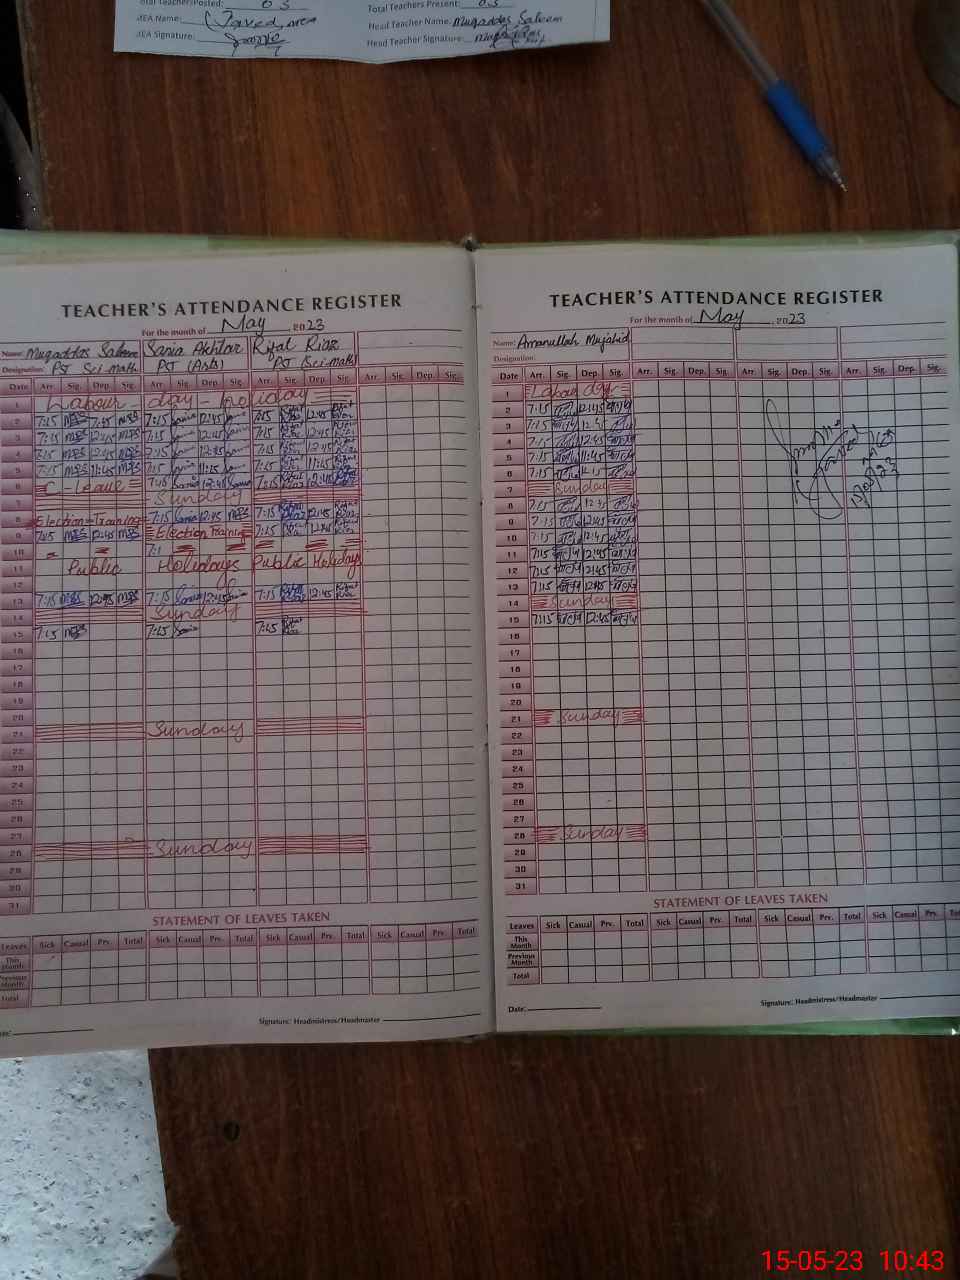 Total Teachers Posted: 03 Total Teachers Present: 03
AEA Name: Javed Head Teacher Name: Muqaddas Saleem
AEA Signature: Head Teacher Signature:
TEACHER'S ATTENDANCE REGISTER
For the month of May 2023
Name: Muqaddas Saleem Sania Akhtar Rifat Riaz
Designation: PST Sci-math PST (Arts) PST (Sci-math)
Date Arr. Sig. Dep. Sig. Arr. Sig. Dep. Sig. Arr. Sig. Dep. Sig. Arr. Sig. Dep. Sig.
1 Labour - day - holiday
2 7:15 MSS 7:45 MSS 7:15 Sania 12:45 Sania 7:15 Rifat Riaz 12:45 Rifat Riaz
3 7:15 MSS 12:45 MSS 7:15 Sania 12:45 Sania 7:15 Rifat Riaz 12:45 Rifat Riaz
4 7:15 MSS 12:45 MSS 7:15 Sania 12:45 Sania 7:15 Rifat Riaz 12:45 Rifat Riaz
5 7:15 MSS 11:45 MSS 7:15 Sania 11:45 Sania 7:15 Rifat Riaz 11:45 Rifat Riaz
6 C-Leave 7:15 Sania 12:45 Sania 7:15 Rifat Riaz 12:45 Rifat Riaz
7 Sunday
8 Election-Training 7:15 Sania 12:45 7:15 Rifat Riaz 12:45 Rifat Riaz
9 7:15 MSS 12:45 MSS Election Training 7:15 Rifat Riaz 12:45 Rifat Riaz
10
11 Public Holidays Public Holidays
12
13 7:15 MSS 12:45 MSS 7:15 Sania 12:45 Sania 7:15 Rifat Riaz 12:45 Rifat Riaz
14 Sunday
15 7:15 MSS 7:15 Sania 7:15 Rifat Riaz
16
17
18
19
20
21 Sunday
22
23
24
25
26
27
28 Sunday
29
30
31
STATEMENT OF LEAVES TAKEN
Leaves Sick Casual Prv. Total Sick Casual Prv. Total Sick Casual Prv. Total Sick Casual Prv. Total
This Month
Previous Month
Total
Date: Signature: Headmistress/Headmaster
TEACHER'S ATTENDANCE REGISTER
For the month of May 2023
Name: Amanullah Mujahid
Designation:
Date Arr. Sig. Dep. Sig. Arr. Sig. Dep. Sig. Arr. Sig. Dep. Sig. Arr. Sig. Dep. Sig.
1 Labour day
2 7:15 12:45
3 7:15 12:45
4 7:15 12:45
5 7:15 11:45
6 7:15 12:15
7 Sunday
8 7:15 12:45
9 7:15 12:45
10 7:15 12:45
11 7:15 12:45
12 7:15 12:45
13 7:15 12:45
14 Sunday
15 7:15 12:45
16
17
18
19
20
21 Sunday
22
23
24
25
26
27
28 Sunday
29
30
31
STATEMENT OF LEAVES TAKEN
Leaves Sick Casual Prv. Total Sick Casual Prv. Total Sick Casual Prv. Total Sick Casual Prv. Total
This Month
Previous Month
Total
Date: Signature: Headmistress/Headmaster
15-05-23 10:43